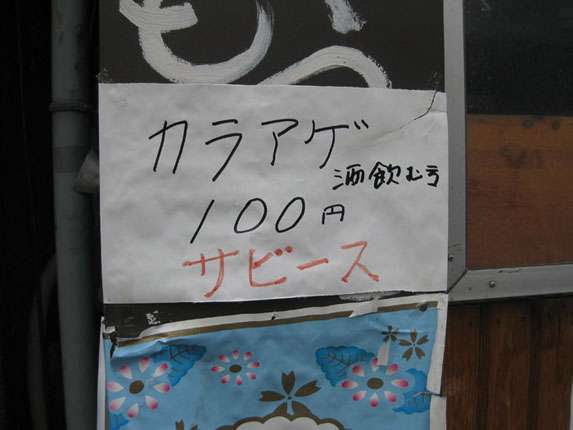 カラアゲ
酒飲む方
100円
サビース